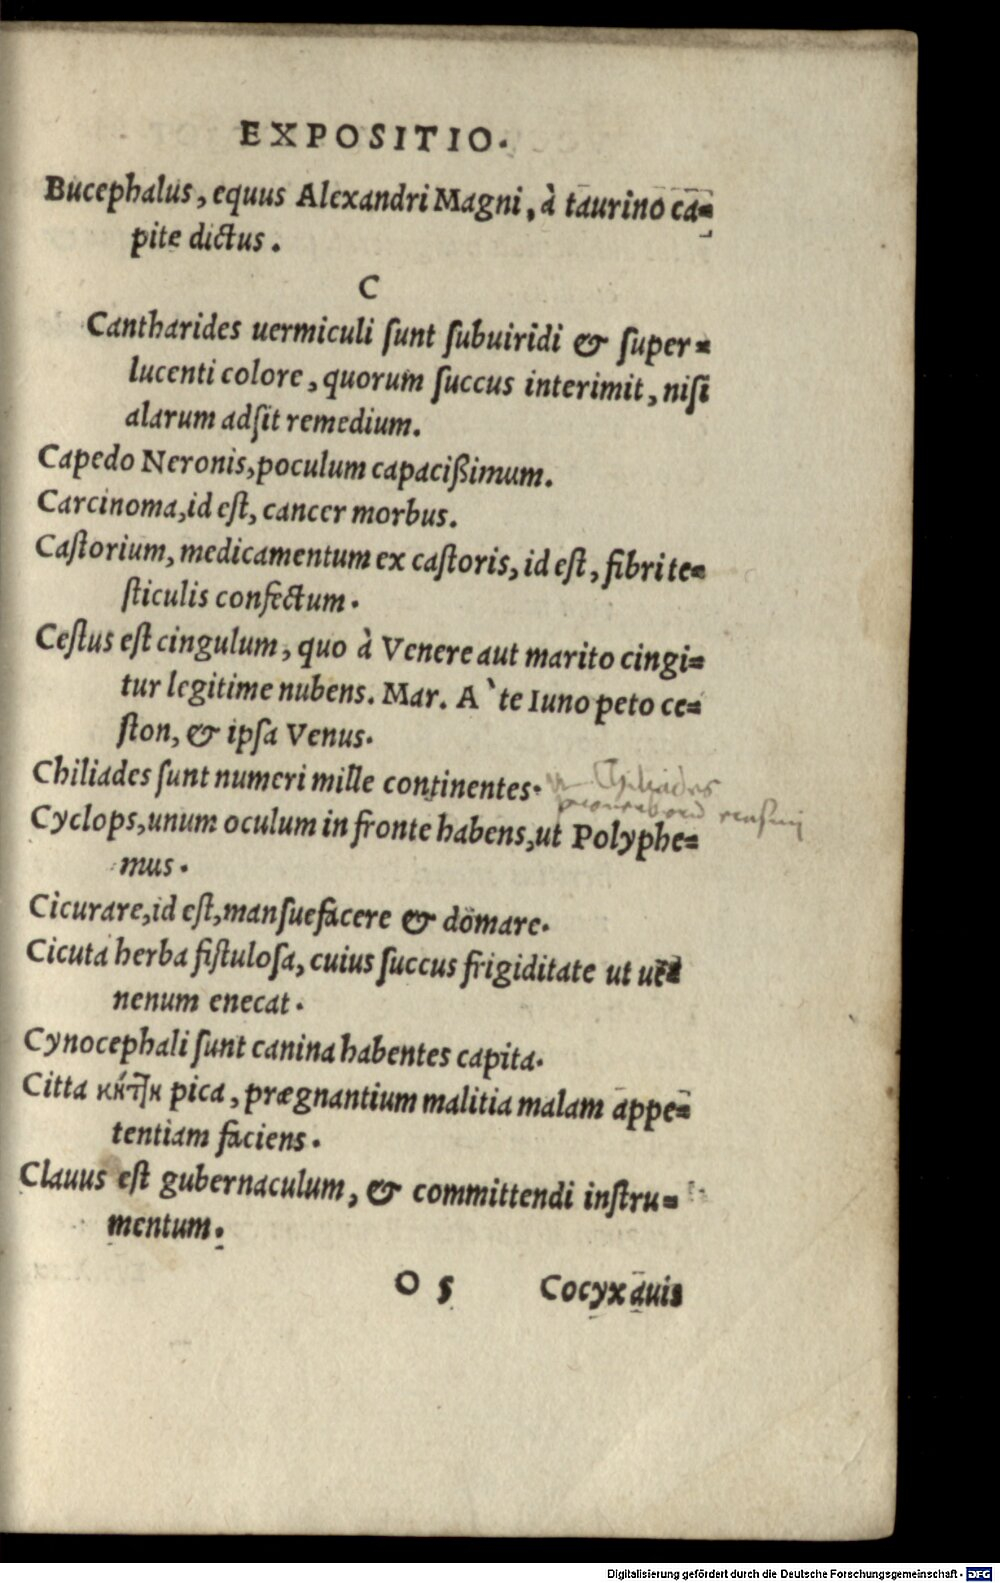 EXPOSITIO.
Bucephalus, equus Alexandri Magni, à taurino ca=
pite dictus.
C
Cantharides uermiculi ſunt ſubuiridi & ſuper=
lucenti colore, quorum ſuccus interimit, niſi
alarum adſit remedium.
Capedo Neronis, poculum capacißimum.
Carcinoma, id eſt, cancer morbus.
Caſtorium, medicamentum ex caſtoris, id eſt, fibri te=
ſticulis confectum.
Ceſtus eſt cingulum, quo à Venere aut marito cingi=
tur legitime nubens. Mar. A` te Iuno peto ce=
ſton, & ipſa Venus.
Chiliades ſunt numeri mille continentes.
Chiliades
Cyclops, unum oculum in fronte habens, ut Polyphe=
mus.
Cicurare, id eſt, manſuefacere & domare.
Cicuta herba fiſtuloſa, cuius ſuccus frigiditate ut ue=
nenum enecat.
Cynocephali ſunt canina habentes capita.
Citta pica, prægnantium malitia malam appe=
tentiam faciens.
Clauus eſt gubernaculum, & committendi inſtru=
mentum.
O 5 Cocyx auis
Digitalisierung gefördert durch die Deutsche Forschungsgemeinschaft - DFG